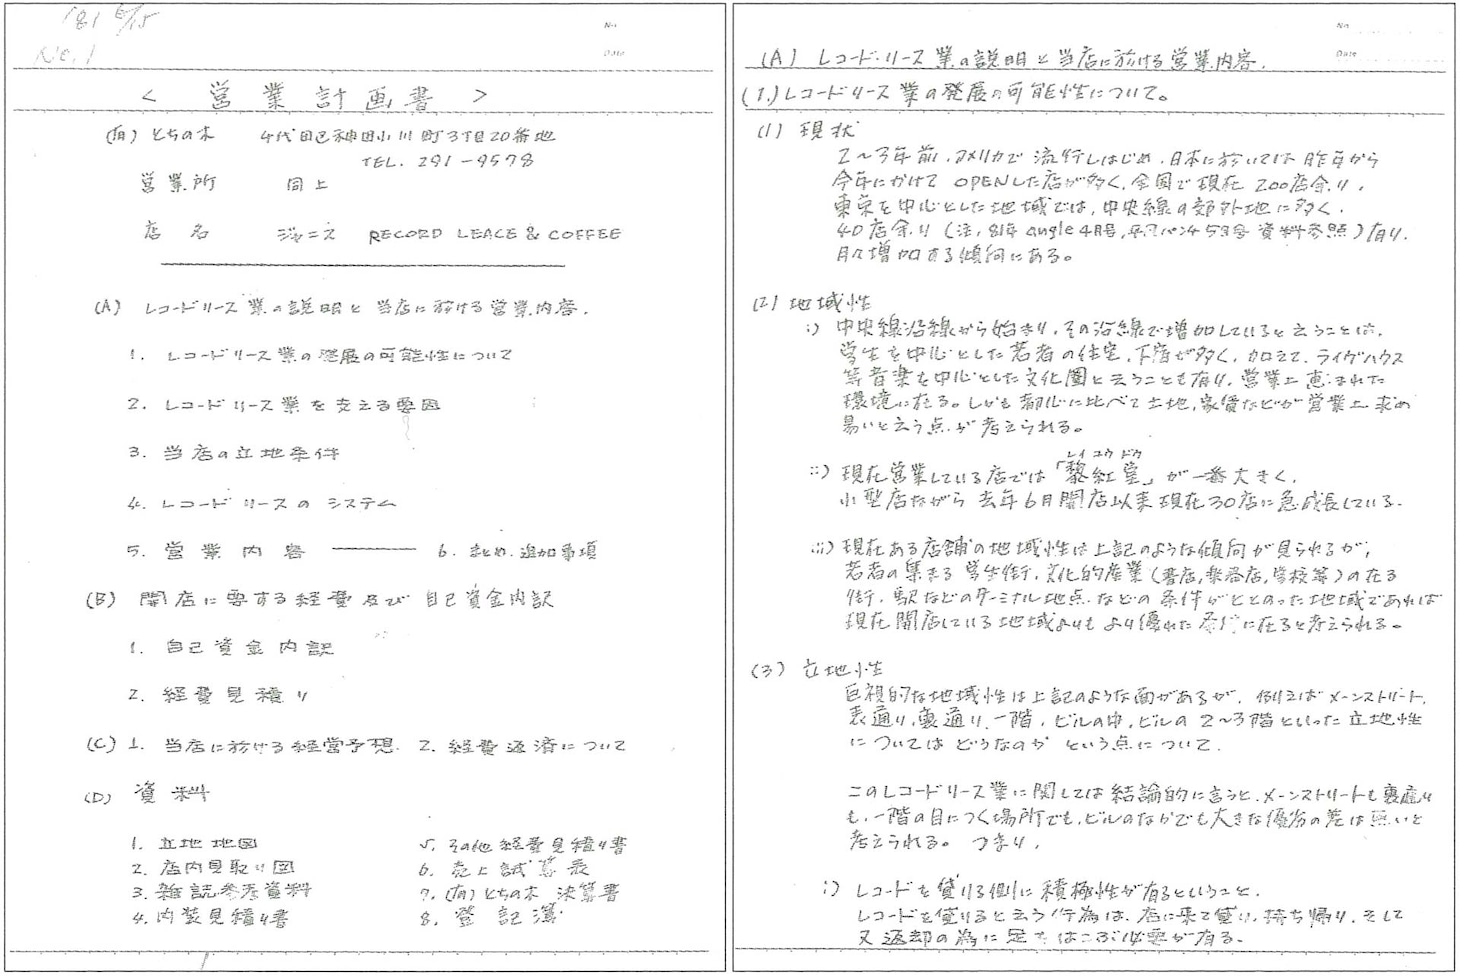 '81 6/15
No.1
No.
Date
< 営業計画書 >
(有)とちの木 千代田区神田小川町3丁目20番地
TEL. 291-9578
営業所 同上
店名 ジャニス RECORD LEACE & COFFEE
(A) レコードリース業の説明と当店に於ける営業内容.
1. レコードリース業の発展の可能性について
2. レコードリース業を支える要因
3. 当店の立地条件
4. レコードリースのシステム
5. 営業内容 ——— 6. まとめ.追加事項
(B) 開店に要する経費及び自己資金内訳
1. 自己資金内訳
2. 経費見積り
(C) 1. 当店に於ける経営予想. 2. 経費返済について
(D) 資料
1. 立地地図
2. 店内見取り図
3. 雑誌参考資料
4. 内装見積り書
5. その他経費見積り書
6. 売上試算表
7. (有)とちの木 決算書
8. 登記簿
No.
Date
(A) レコード・リース業の説明と当店に於ける営業内容.
(1.) レコードリース業の発展の可能性について。
(1) 現状
2〜3年前.アメリカで流行しはじめ.日本に於いては昨年から
今年にかけてOPENした店が多く.全国で現在200店余り.
東京を中心とした地域では,中央線の郊外地に多く.
40店余り(注,81年angle4月号,平凡パンチ53号 資料参照)有り.
月々増加する傾向にある。
(2) 地域性
i) 中央線沿線から始まり,その沿線で増加していると云うことは,
学生を中心とした若者の住宅.下宿が多く.加えて.ライヴハウス
等音楽を中心とした文化圏と云うことも有り.営業上恵まれた
環境に在る。しかも都心に比べて土地,家賃などが営業上求め
易いと云う点が考えられる。
ii) 現在営業している店では「黎紅堂」が一番大きく.
レイコウドウ
小型店ながら去年6月開店以来現在30店に急成長している.
iii) 現在ある店舗の地域性は上記のような傾向が見られるが,
若者の集まる学生街.文化的産業(書店,楽器店,学校等)の在る
街.駅などのターミナル地点.などの条件がととのった地域であれば
現在開店している地域よりもより優れた条件に在ると考えられる。
(3) 立地性
巨視的な地域性は上記のような面があるが.例えばメーンストリート.
表通り,裏通り.一階.ビルの中.ビルの2〜3階といった立地性
についてはどうなのか という点について.
このレコードリース業に関しては結論的に言うと.メーンストリートも裏通り
も.一階の目につく場所でも.ビルのなかでも大きな優劣の差は無いと
考えられる。つまり.
i) レコードを借りる側に積極性が有るということ.
レコードを借りると云う行為は.店に来て借り.持ち帰り.そして
又返却の為に足をはこぶ必要が有る.